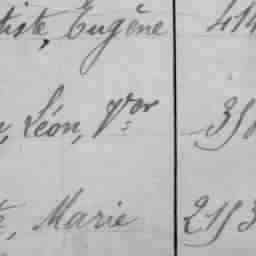 tiste, Eugène 414
, Léon, Vor 35
, Marie 2153